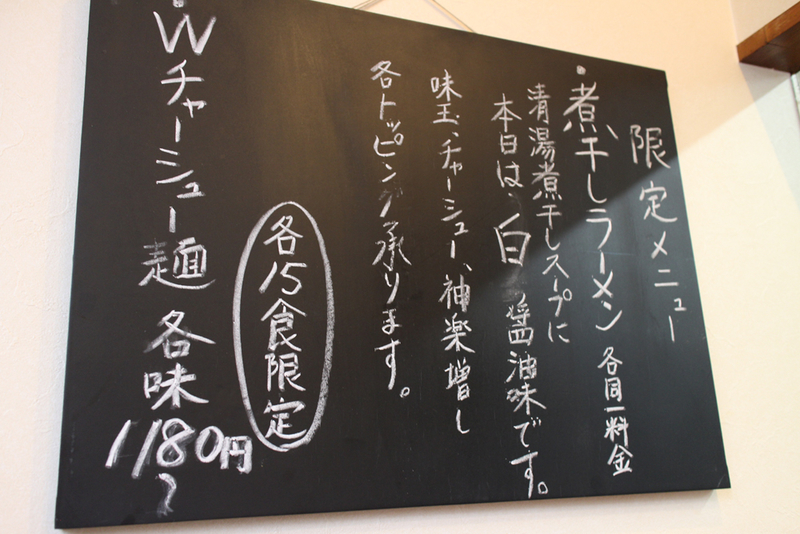 限定メニュー
・煮干しラーメン 各同一料金
清湯煮干しスープに
本日は、白醤油味です。
味玉、チャーシュー、神楽増し
各トッピング承ります。
各15食限定
・Wチャーシュー麺 各味
1180円
〜